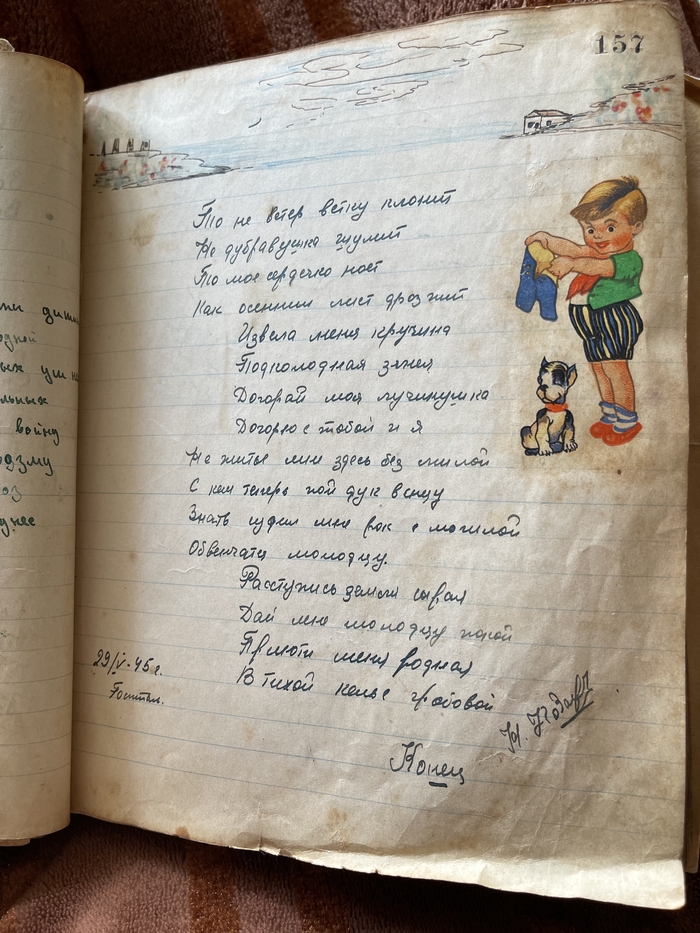 157
То не ветер ветку клонит
Не дубравушка шумит
То мое сердечко ноет
Как осенний лист дрозжит
Извела меня кручина
Подколодная змея
Догорай моя лучинушка
Догорю с тобой и я
Не житье мне здесь без милой
С кем теперь
Знать судил мне рок с могилой
Обвенчатся молодцу.
Расступись земля сырая
Дай мне молодцу покой
Приюти меня родная
В тихой келье гробовой
29/V-45 г.
Госпитал.
Конец
одной
льных
войну